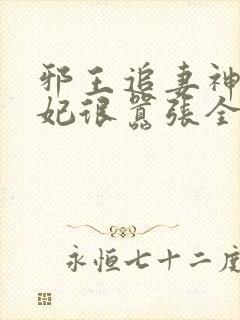 邪王追妻神
妃很嚣张全
永恒七十二度